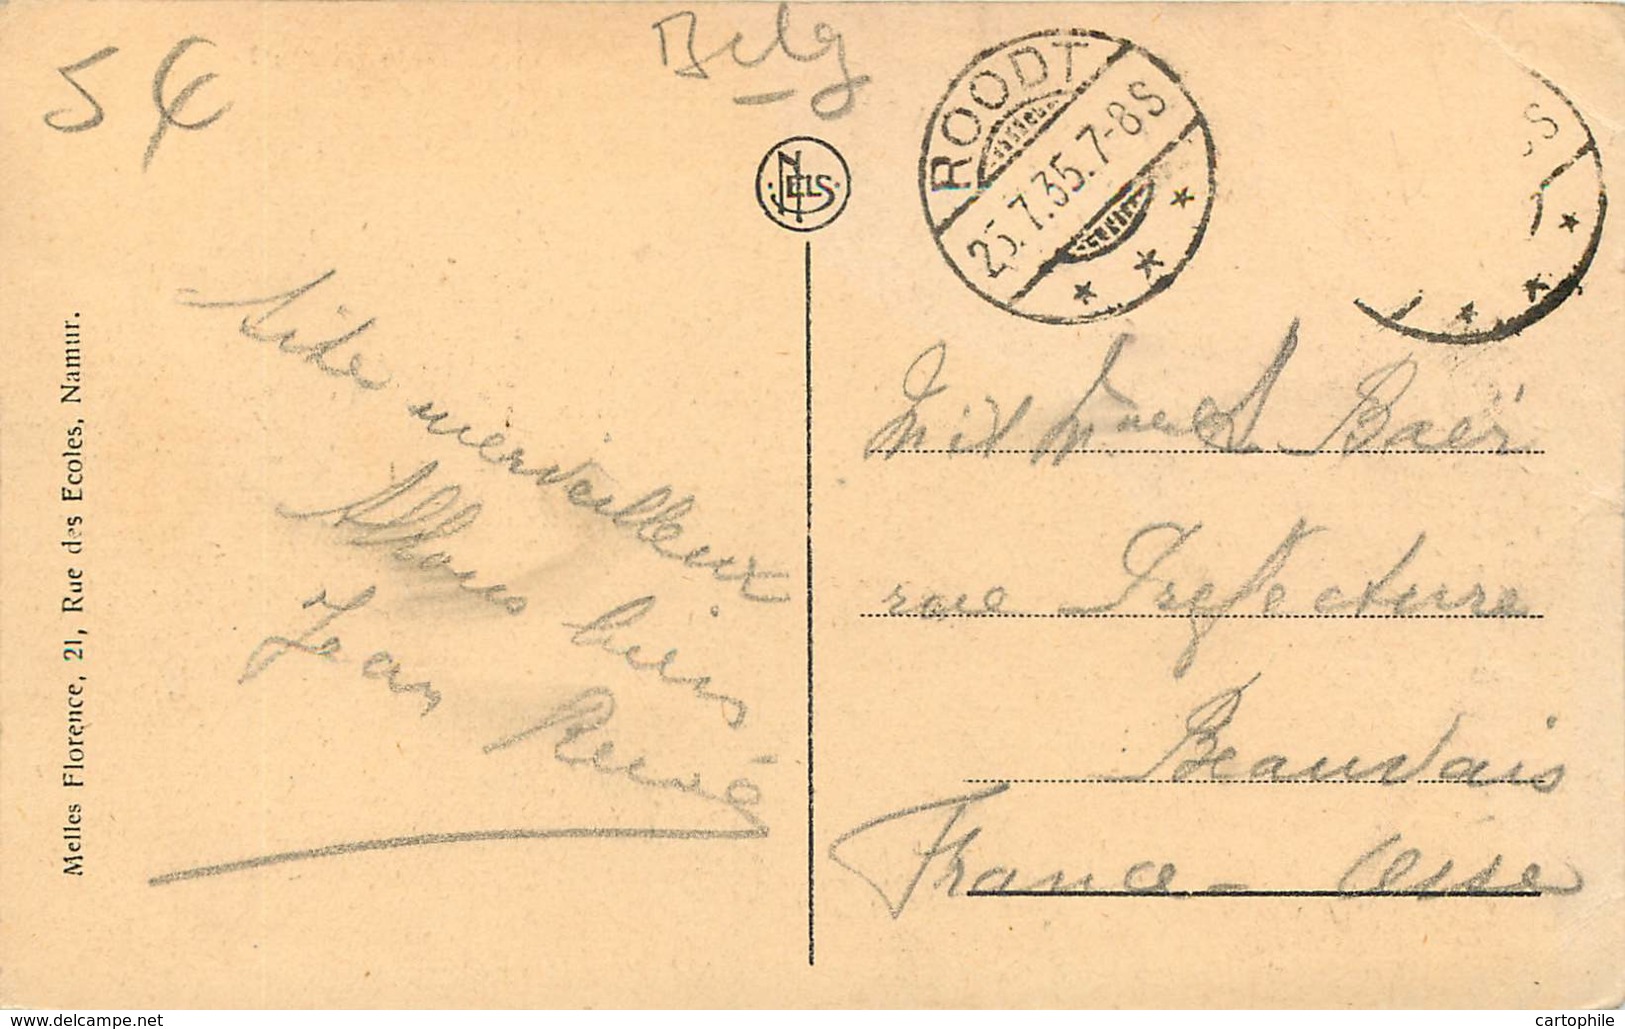 5 €
Belg
NELS
ROODT
25.7.35.7-8S
S
Site merveilleux
Allons bien
Jean René
Baër
rue Prefecture
Beauvais
France - Oise
Melles Florence, 21, Rue des Ecoles, Namur.
www.delcampe.net
cartophile